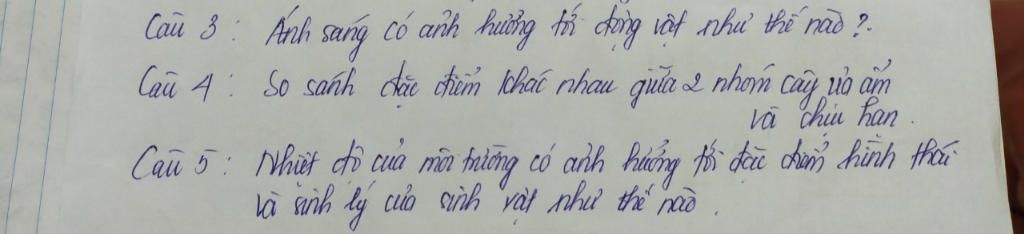 Câu 3 : Ánh sáng có ảnh hưởng tới động vật như thế nào ?.
Câu 4 : So sánh đặc điểm khác nhau giữa 2 nhóm cây ưa ẩm
và chịu hạn .
Câu 5 : Nhiệt độ của môi trường có ảnh hưởng tới đặc điểm hình thái
và sinh lý của sinh vật như thế nào .